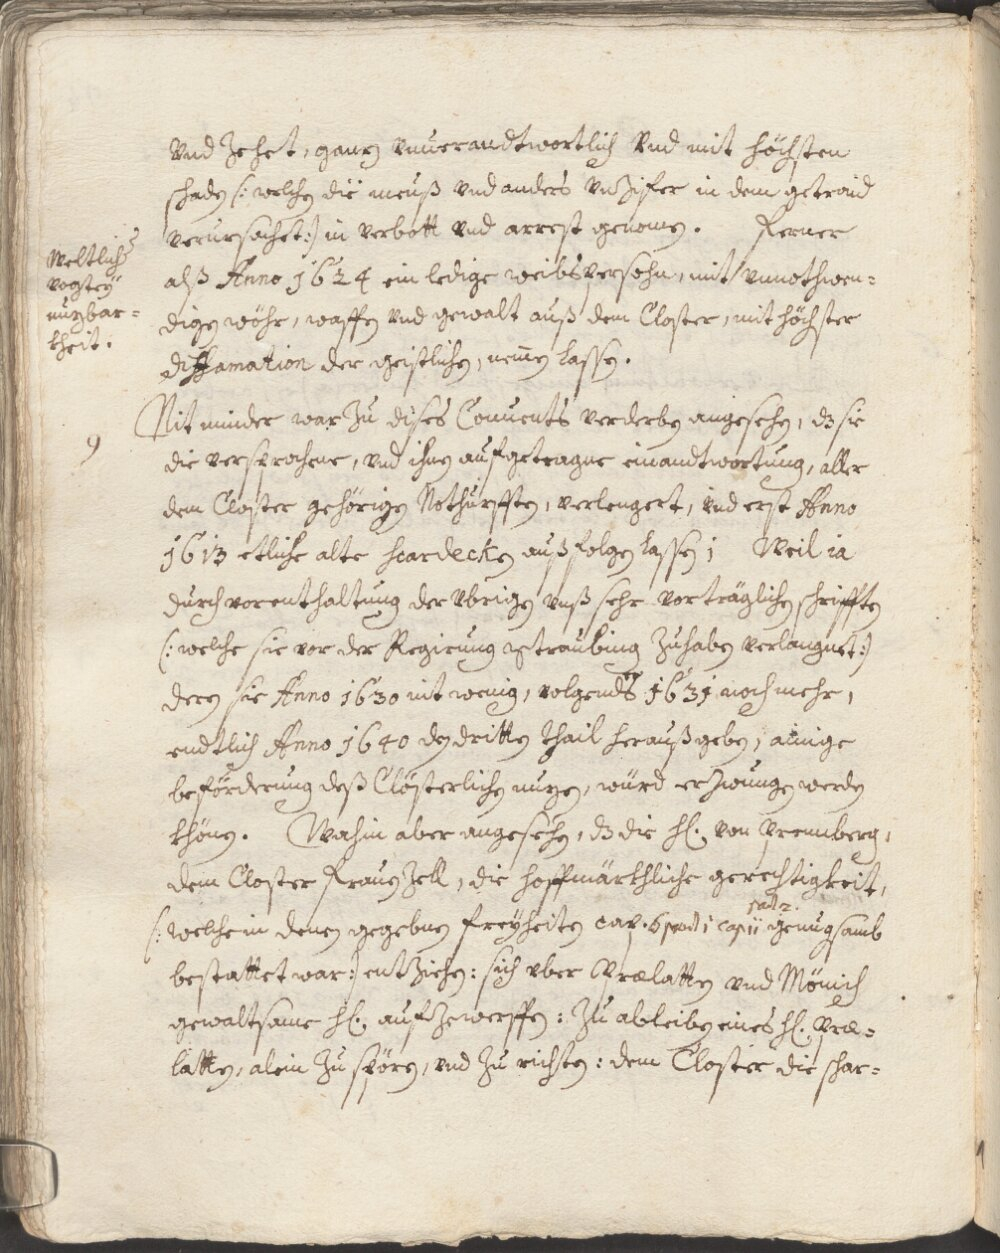 Vnd Zehet, gantz vnuerandtwortlich Vnd mit höchsten
schaden (: welchen die meuß vnd anders vnZifer in dem getraid
verursachet:) in verbott vnd arrest genomen. Ferner
alß Anno 1624 ein ledige weibspersohn, mit vnnothwen=
digen wöhr, waffen vnd gewalt auß dem Closter, mit höchster
diffamation der geistlichen, nemen lassen.
Weltlich
vogtey
nuzbar=
kheit.
9
Nit minder war Zu dises Conuents verderben angesehen, dz sie
die versprochene, vnd ihnen aufgetragne einandtwortung, aller
dem Closter gehörigen Nothurfften, verlengert, vnd erst Anno
1613 etliche alte scardecken außfolgen lassen; Weil ia
durch vorenthaltung der vbrigen vnß sehr vorträglichen schrifften
(: welche sie vor der Regierung Straubing Zuhaben verlaugnet:)
deren sie Anno 1630 nit wenig, volgends 1631 noch mehr,
endtlich Anno 1640 den dritten thail heraußgeben, ainige
beförderung deß Clösterlichen nuzen, würd erZwungen werden
khönen. Wohin aber angesehen, dz die H. von Brennberg,
dem Closter FrauenZell, die hoffmärkhliche gerechtigkeit,
(: welche in denen gegebnen freyheiten cap. 6 genugsamb
bestattet war:) entZiehen: sich vber Prælatten vnd Mönich
gewaltsame H. aufZewerffen: Zu ableiben eines H. Præ=
latten, alein Zu spören, vnd Zu richten: dem Closter die schar=